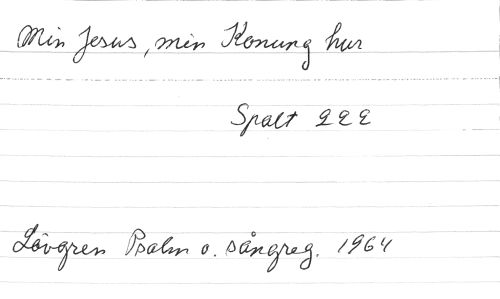 Min Jesus, min Konung hur
Spalt 222
Lövgren Psalm o. sångreg. 1964